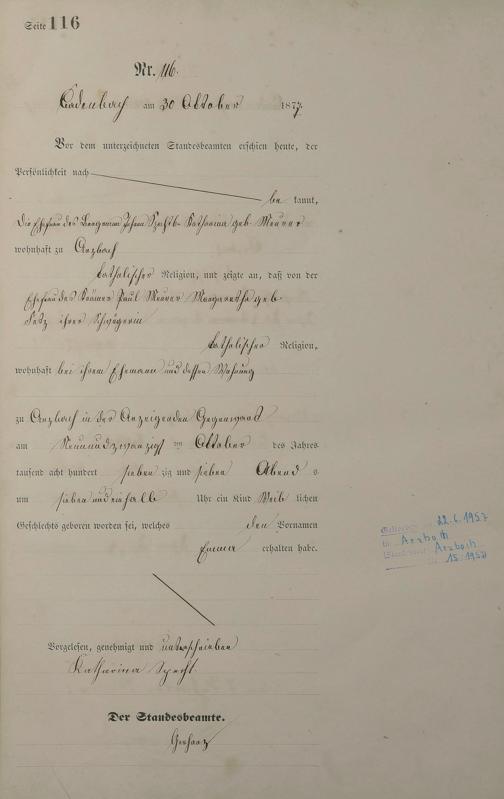 Seite 116
Nr. 116.
Cadenbach am 30 Oktober 1877.
Vor dem unterzeichneten Standesbeamten erschien heute, der
Persönlichkeit nach
be kannt,
die Ehefrau des Bergmann Johann Specht Katharina geb. Meurer
wohnhaft zu Arzbach
katholischer Religion, und zeigte an, daß von der
Ehefrau des Krämer Paul Meurer Margaretha geb.
ihrer Schwägerin
katholischer Religion,
wohnhaft bei ihrem Ehemann und dessen Wohnung
zu Arzbach in der Anzeigenden Gegenwart
am Neunundzwanzigst en Oktober des Jahres
tausend acht hundert sieben zig und sieben Abend s
um sieben und ein halb Uhr ein Kind Weib lichen
Geschlechts geboren worden sei, welches den Vornamen
Emma erhalten habe.
Vorgelesen, genehmigt und unterschrieben
Katharina Specht
Der Standesbeamte.
22.6.1957
in Arzbach
Standesamt Arzbach
15 1957